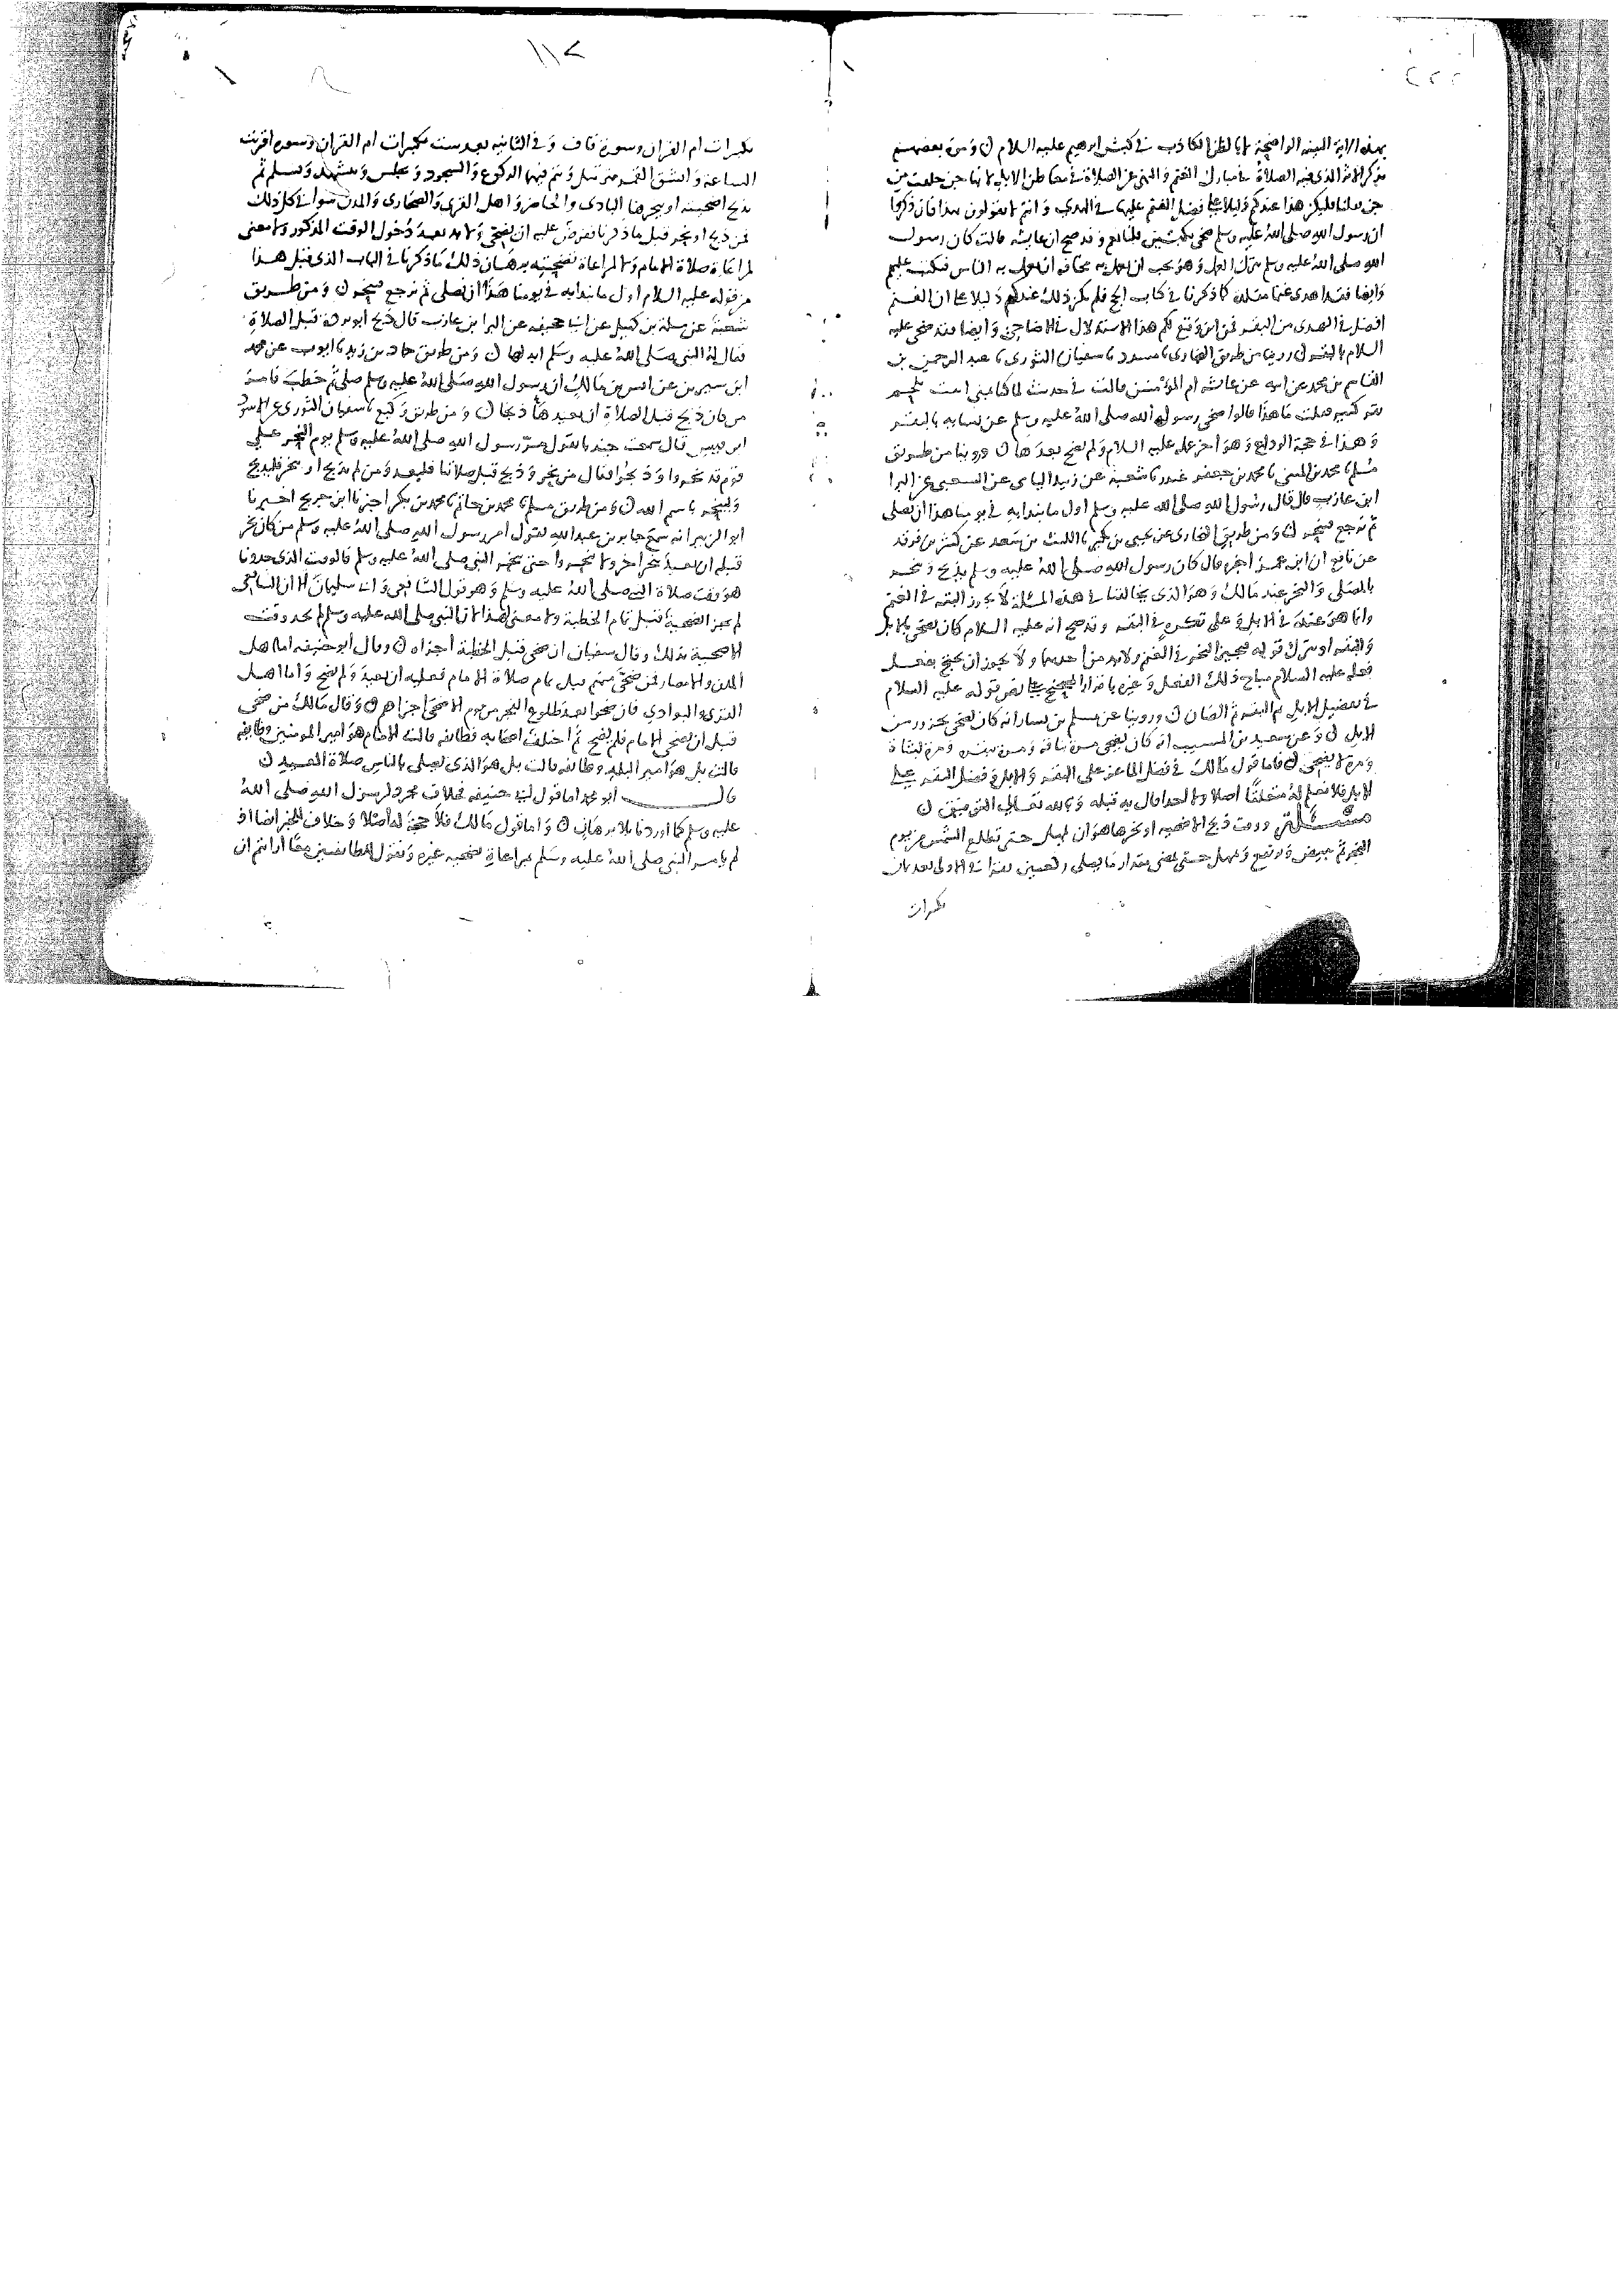 ١١٧
بهذه الاية البينة الواضحة لا بالظن الكاذب في كبش ابرهيم عليه السلام ومن بعضهم
ذكر الاثر الذي فيه الصلاة في مبارك الغنم والنهي عن الصلاة في معاطن الابل لانها جن خلقت من
جن قلنا فليكن هذا عندكم دليلا على فضل الغنم عليها في الهدي وانتم لا تقولون بهذا فان ذكروا
ان رسول الله صلى الله عليه وسلم ضحى بكبشين قلنا نعم وقد صح ان عايشة قالت كان رسول
الله صلى الله عليه وسلم يترك العمل وهو يحب ان يعمل به مخافة ان يعمل به الناس فيكتب عليهم
وايضا فقد اهدى غنما مقلدة كما ذكرنا في كتاب الحج فلم يكن ذلك عندكم دليلا على ان الغنم
افضل في الهدي من البقر فمن اين وقع لكم هذا الاستدلال في الاضاحي وايضا فقد ضحى عليه
السلام بالبقر روينا من طريق البخاري نا مسدد نا سفيان الثوري نا عبد الرحمن بن
القاسم بن محمد عن ابيه عن عايشة ام المؤمنين قالت في حديث لما كنا بمنى اتيت بلحم
بقر كثير فقلت ما هذا قالوا ضحى رسول الله صلى الله عليه وسلم عن نسايه بالبقر
وهذا في حجة الوداع وهو اخر عمله عليه السلام ولم يضح بعدها وروينا من طريق
مسلم نا محمد بن المثنى نا محمد بن جعفر غندر نا شعبة عن زبيد اليامي عن الشعبي عن البرا
ابن عازب قال قال رسول الله صلى الله عليه وسلم اول ما نبدا به في يومنا هذا ان نصلي
ثم نرجع فننحر ومن طريق البخاري عن يحيى بن بكير نا الليث بن سعد عن كثير بن فرقد
عن نافع ان ابن عمر اخبره قال كان رسول الله صلى الله عليه وسلم يذبح وينحر
بالمصلى والنحر عند مالك وهو الذي يخالفنا في هذه المسئلة لا يجوز البتة في الغنم
وانما هو عنده في الابل وعلى تكره في البقر وقد صح انه عليه السلام كان يضحي بالابل
والبقر او يترك قوله فيجيز النحر في الغنم ولا بد من احدهما ولا يجوز ان يحتج بفعل
فعله عليه السلام مباح ذلك الفعل وغيره باقرارا نص قوله عليه السلام
في تفضيل الابل ثم البقر ثم الضان وروينا عن مسلم بن يسار انه كان يضحي بجزور من
الابل وعن سعيد بن المسيب انه كان يضحي مرة بناقة ومرة ببقرة ومرة بشاة
ومرة لا يضحي فاما قول مالك في فضل الماعز على البقر والابل وفضل البقر على
الابل فلا نعلم له متعلقا اصلا ولا احدا قال به قبله وبالله تعالى التوفيق
مسئلة ووقت ذبح الاضحية او نحرها هو ان يمهل حتى تطلع الشمس من يوم
النحر ثم تبيض وترتفع ويمهل حتى يمضي مقدار ما يصلي ركعتين يقرا في الاولى بعد ثمان
تكبيرات
تكبيرات ام القران وسورة قاف وفي الثانية بعد ست تكبيرات ام القران وسورة اقتربت
الساعة وانشق القمر مترتيل ويتم فيهما الركوع والسجود ويجلس ويتشهد ويسلم ثم
يذبح اضحيته او ينحرها البادي والحاضر واهل القرى والصحاري والمدن سوا في كل ذلك
فمن ذبح او نحر قبل ما ذكرنا ففرض عليه ان يضحي ولا بد بعد دخول الوقت المذكور ولا معنى
لمراعاة صلاة الامام ولا لمراعاة تضحيته برهان ذلك ما ذكرنا في الباب الذي قبل هذا
من قوله عليه السلام اول ما نبدا به في يومنا هذا ان نصلي ثم نرجع فننحر ومن طريق
شعبة عن سلمة بن كهيل عن ابي جحيفة عن البرا بن عازب قال ذبح ابو بردة قبل الصلاة
فقال له النبي صلى الله عليه وسلم ابدلها ومن طريق حماد بن زيد نا ايوب عن محمد
ابن سيرين عن انس بن مالك ان رسول الله صلى الله عليه وسلم صلى ثم خطب فامر
من كان ذبح قبل الصلاة ان يعيدها ذبحا ومن طريق وكيع نا سفيان الثوري عن الاسود
ابن قيس قال سمعت جندبا يقول مر رسول الله صلى الله عليه وسلم يوم النحر على
قوم قد نحروا وذبحوا فقال من نحر وذبح قبل صلاتنا فليعد ومن لم يذبح او ينحر فليذبح
ولينحر باسم الله ومن طريق مسلم نا محمد بن حاتم نا محمد بن بكر اخبرنا ابن جريج اخبرنا
ابو الزبير انه سمع جابر بن عبد الله يقول امر رسول الله صلى الله عليه وسلم من كان نحر
قبله ان يعيد بنحر اخر ولا ينحروا حتى ينحر النبي صلى الله عليه وسلم فالوقت الذي حددنا
هو وقت صلاة النبي صلى الله عليه وسلم وهو قول الشافعي وابي سليمان الا ان الشافعي
لم يجز التضحية قبل تمام الخطبة ولا معنى لهذا لان النبي صلى الله عليه وسلم لم يحد وقت
الاضحية بذلك وقال سفيان ان ضحى قبل الخطبة اجزاه وقال ابو حنيفة اما اهل
المدن والامصار فمن ضحى منهم قبل تمام صلاة الامام فعليه ان يعيد ولم يضح واما اهل
القرى والبوادي فان ضحوا بعد طلوع الفجر من يوم الاضحى اجزاهم وقال مالك من ضحى
قبل ان يضحي الامام فلم يضح ثم اختلف اصحابه فطائفة قالت الامام هو امير المومنين وطايفة
قالت بل هو امير البلد وطايفة قالت بل هو الذي يصلي بالناس صلاة العيد
قال ابو محمد اما قول ابي حنيفة فخلاف مجرد لرسول الله صلى الله
عليه وسلم كما اوردنا بلا برهان واما قول مالك فلا حجة له اصلا وخلاف للخبر ايضا اذ
لم يامر النبي صلى الله عليه وسلم بمراعاة تضحية غيره ونقول للطايفتين معا ارايتم ان